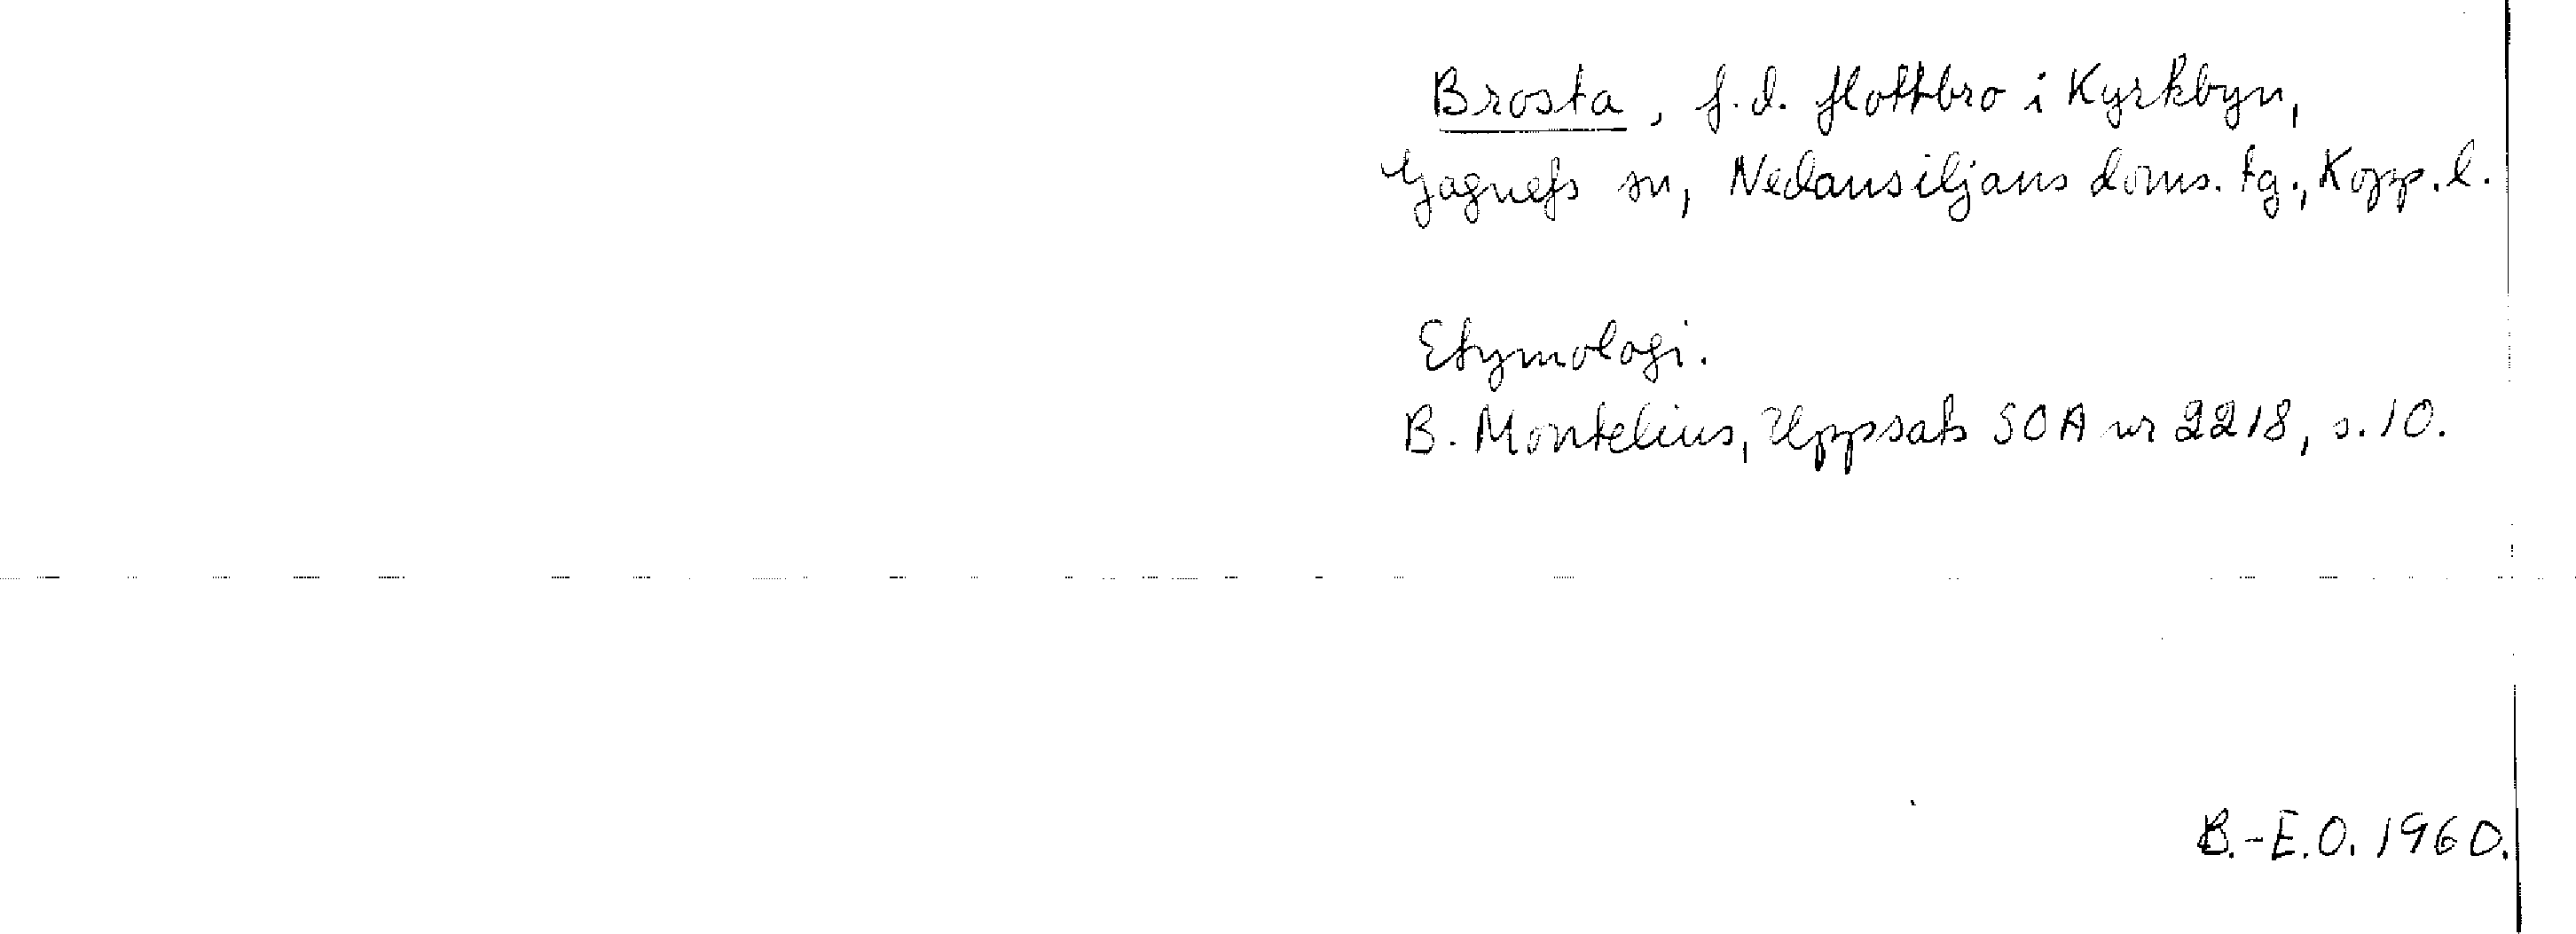 Brosta, f.d. flottbro i Kyrkbyn,
Gagnefs sn, Nedansiljans doms. tg., Kopp. l.
Etymologi.
B. Montelius, Uppsats SOA nr 2218, s. 10.
B.-E.O. 1960.